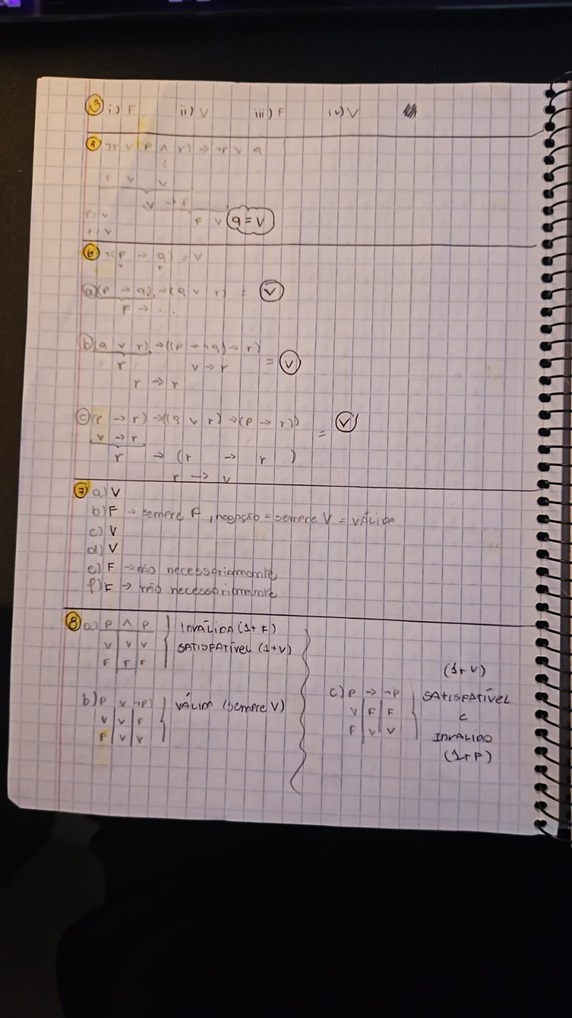 ③ i) F ii) V iii) F iv) V
④ ¬r v (p ∧ r) → ¬p v q
F v V
V → F
F v q = V
r = V
⑥ ¬(p → q) = V
a) (p → q) → (q v r) = V
F → ...
b) (q v r) → ((p → ¬q) → r) = V
r V → r
r → r
c) (p → r) → ((q v r) → (p → r)) = V
V → r
r → (r → r)
r → V
⑦ a) V
b) F → sempre F, negação = sempre V = VÁLIDA
c) V
d) V
e) F → não necessariamente
f) F → não necessariamente
⑧ a) p ∧ p INVÁLIDA (1+F)
V V V SATISFATÍVEL (1+V)
F F F
b) p v ¬p VÁLIDA (sempre V)
V V F
F V V
c) p → ¬p
V F F
F V V
(1+V)
SATISFATÍVEL
e
INVÁLIDO
(1+F)